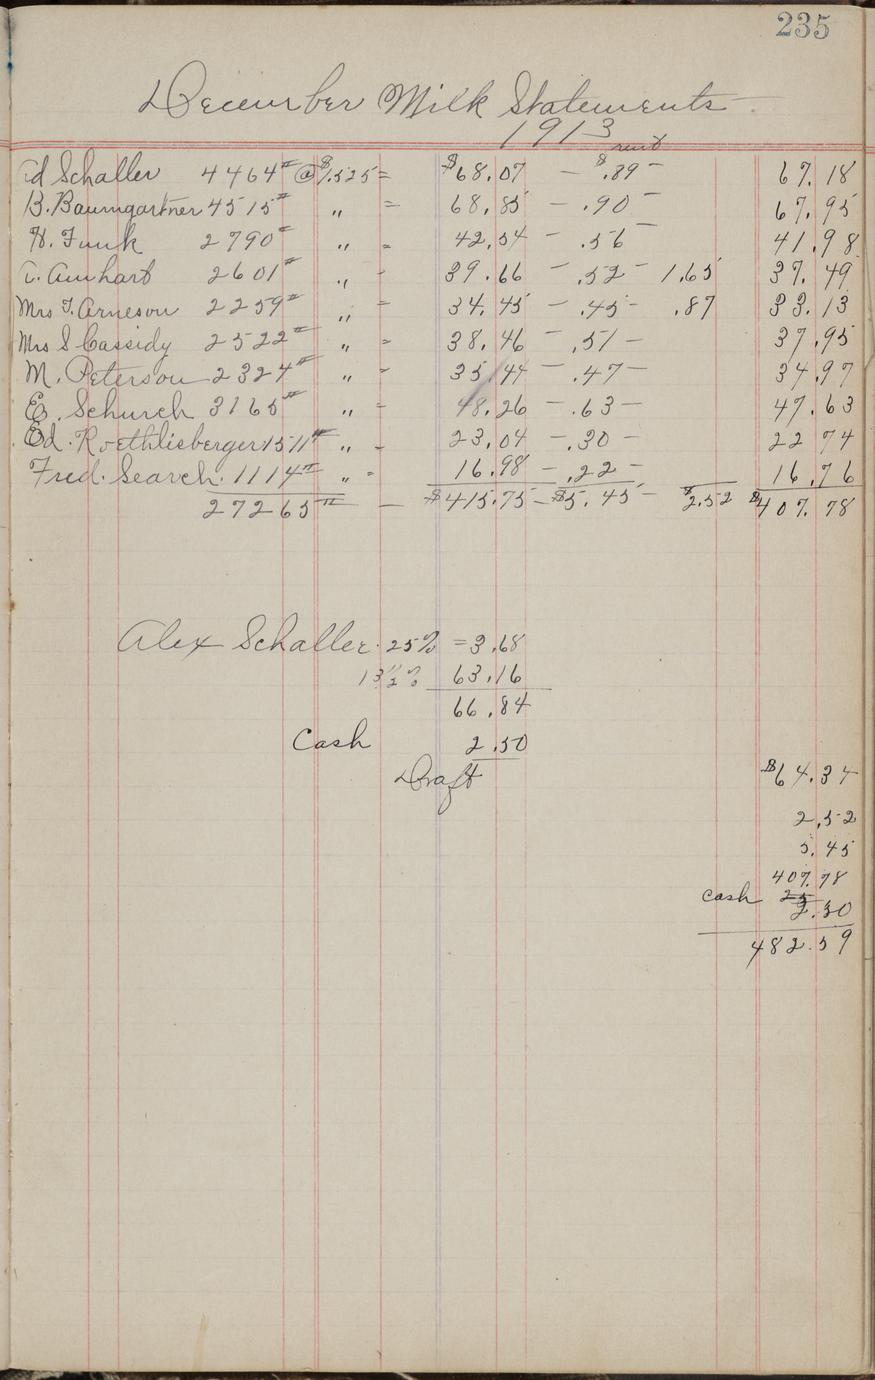 235
December Milk Statements
1913
rent
Ed Schaller 4464# @ $1.525 = $68.07 — $.89 — 67.18
B. Baumgartner 4515# " = 68.85 — .90 — 67.95
H. Funk 2790# " = 42.54 — .56 — 41.98
A. Amhart 2601# " - 39.66 — .52 — 1.65 37.49
Mrs T. Arneson 2259# " = 34.45 — .45 — .87 33.13
Mrs S Cassidy 2522# " = 38.46 — .51 — 37.95
M. Peterson 2324# " = 35.44 — .47 — 34.97
E. Schurch 3165# " = 48.26 — .63 — 47.63
Ed. Roethlisberger 1511# " = 23.04 — .30 — 22 74
Fred. Search. 1114# " = 16.98 — .22 — 16.76
27265# — $415.75 — $5.45 — $2.52 $407.78
Alex Schaller. 25% = 3.68
13 1/2 % 63.16
66.84
Cash 2.50
Draft $64.34
2.52
5.45
407.78
cash 2.50
482.59